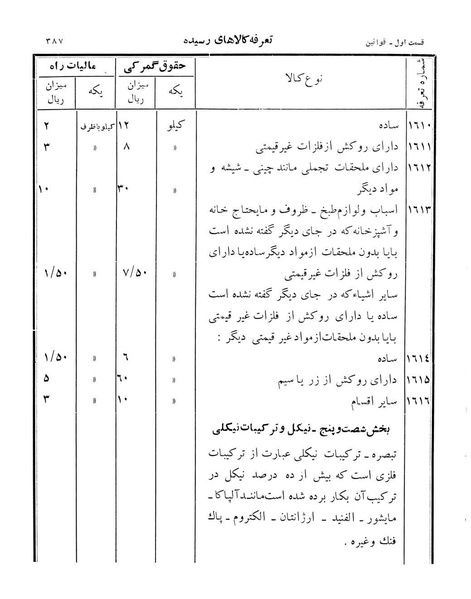 قسمت اول ـ قوانین    تعرفه کالاهای رسیده    ۳۸۷
شماره تعرفه    نوع کالا    حقوق گمرکی    مالیات راه
یکه    میزان ریال    یکه    میزان ریال
۱۶۱۰    ساده    کیلو    ۱۲    کیلو با ظرف    ۲
۱۶۱۱    دارای روکش از فلزات غیر قیمتی    »    ۸    »    ۳
۱۶۱۲    دارای ملحقات تجملی مانند چینی ـ شیشه و
مواد دیگر    »    ۳۰    »    ۱۰
۱۶۱۳    اسباب ولوازم طبخ ـ ظروف و مایحتاج خانه
و آشپزخانه که در جای دیگر گفته نشده است
با یا بدون ملحقات از مواد دیگر ساده یا دارای
روکش از فلزات غیر قیمتی    »    ۷/۵۰    »    ۱/۵۰
سایر اشیاء که در جای دیگر گفته نشده است
ساده یا دارای روکش از فلزات غیر قیمتی
با یا بدون ملحقات از مواد غیر قیمتی دیگر :
۱۶۱۴    ساده    »    ۶    »    ۱/۵۰
۱۶۱۵    دارای روکش از زر یا سیم    »    ۶۰    »    ۵
۱۶۱۶    سایر اقسام    »    ۱۰    »    ۳
بخش شصت و پنج ـ نیکل و ترکیبات نیکلی
تبصره ـ ترکیبات نیکلی عبارت از ترکیبات
فلزی است که بیش از ده درصد نیکل در
ترکیب آن بکار برده شده است مانند آلپاکا ـ
مایشور ـ الفنید ـ ارژانتان ـ الکتروم ـ پاك
فنك وغیره .